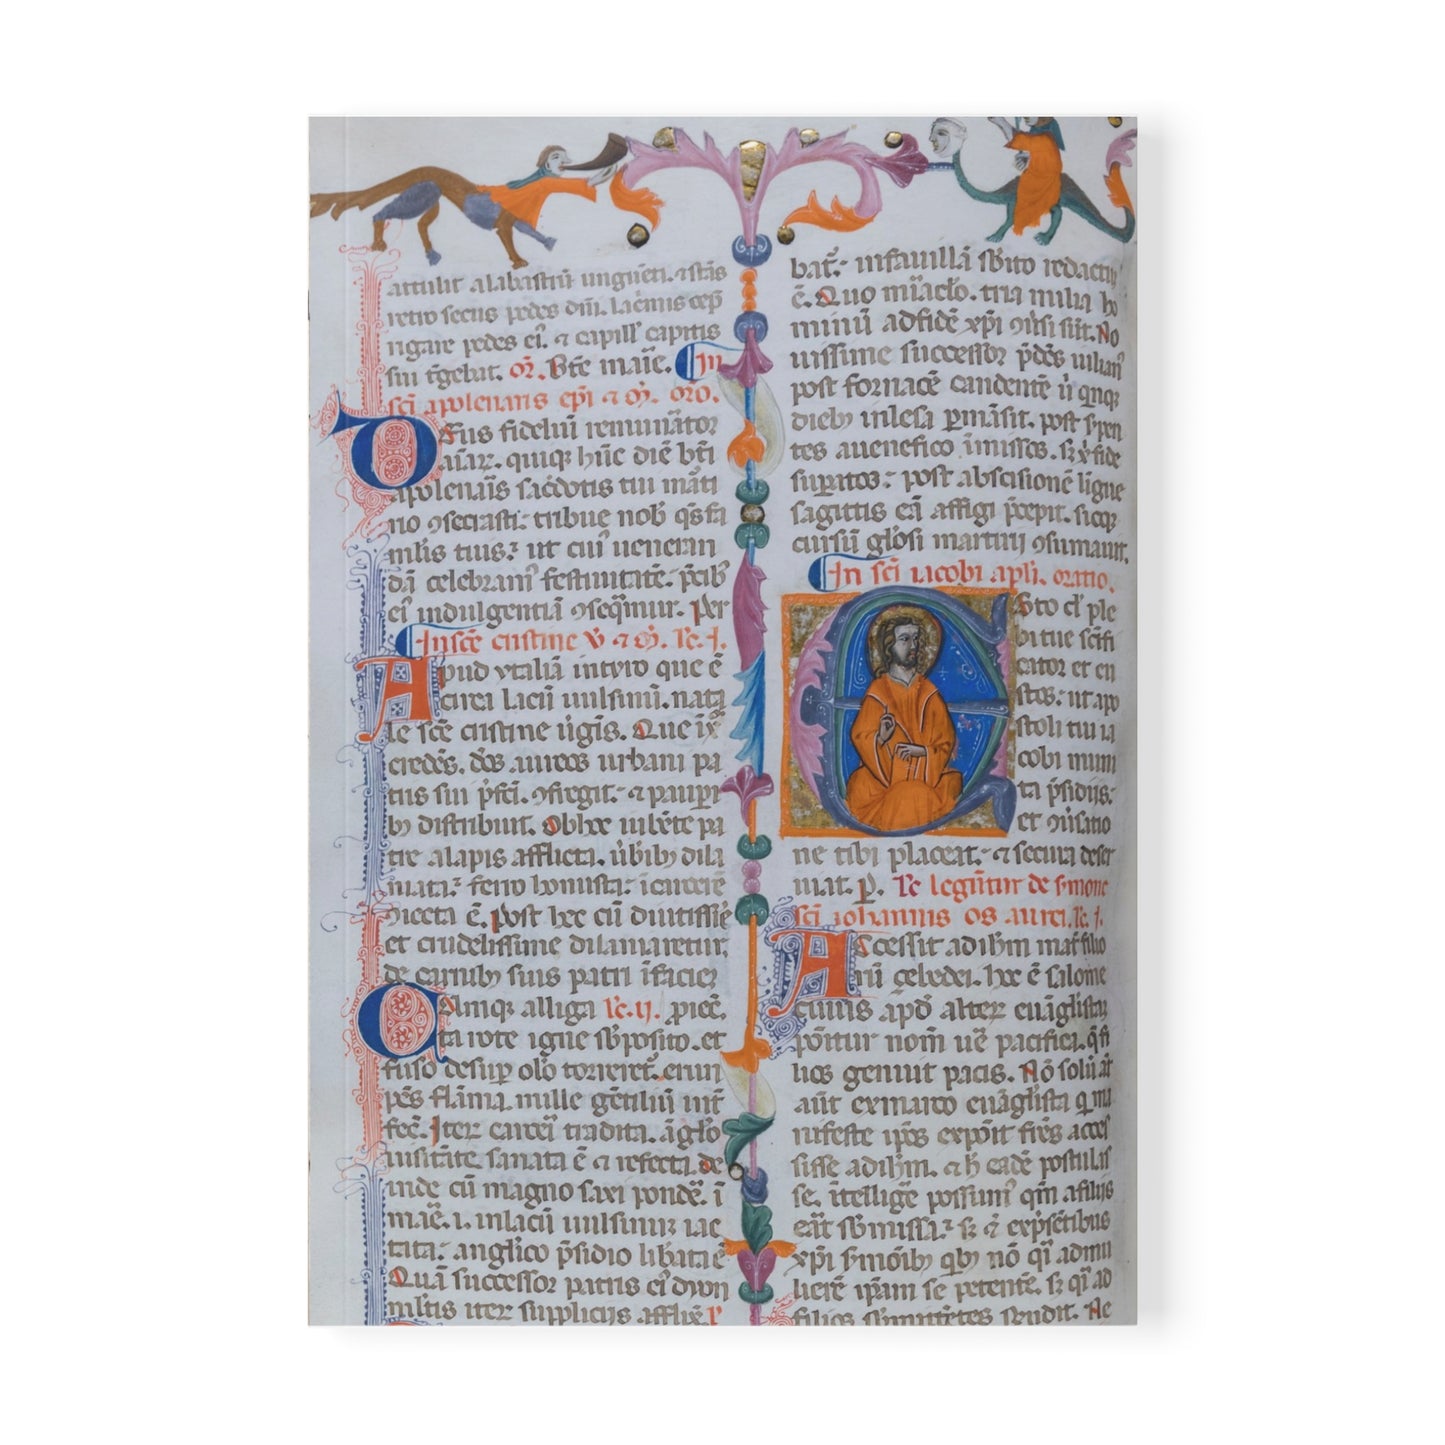 attulit alabastrū unguēti. ⁊ stās
retro secus pedes dñi. lac̄mis cep̄
rigare pedes eiꝰ. ⁊ capill' capitis
sui t̄gebat. oꝛ̄. Bt̄e marie. In
sc̄i apolenaris ep̄i ⁊ m̄. oro.
Deus fideliū remunatoꝛ
aīaꝝ. quiqꝫ hūc diē bt̄i
apolenaris sac̄dotis tui mar̄ti
rio ꝯsecrasti: tribue nob̄ qs̄ fa
mul̄is tuis: ut cuiꝰ ueneran
dā celebramꝰ festiuitatē. p̄cibꝫ
eiꝰ indulgentiā ꝯseq̄mur. Per
In sc̄e cristine v̄ ⁊ m̄. lc̄. i.
Apud ytaliā in tyro que ē
circa lacū uulsinū. nata
le sc̄e cristine ūgīs. Que ī xp̄o
credēs. deos aureos urbani pa
tris sui p̄fc̄i. ꝯfregit. ⁊ paupi
bꝫ distribuit. Ob hec iubēte pa
tre alapis afflicta. ūbibꝫ dila
niata: ferro honusta: ī carcerē
ꝯiecta ē. Post hec cū diutissīe
et crudelissime dilaniaretur
de carnibꝫ suis patri ī faciez
Cumqꝫ alliga lc̄. ii. ꝓiec̄.
ta rote igne sb̄posito. et
fuso desup oleo torreret̄. erūn
pēs flāma. mille gētiliū int̄
fec̄. Iter carcēi tradita. āgelo
uisitāte. sanata ē ⁊ refecta. de
inde cū magno saxi pondē. ī
mare. i. in lacū uulsinuꝫ iac
tata. angelico p̄sidio libata ē
Quā successor patris eiꝰ dyon
mult̄is iter suppliciis afflix. p
bat. in fauillā sb̄ito redact
ē. Quo mirac̄lo. tria milia ho
minū ad fidē xp̄i ꝯūsi sūt. No
uissime successor p̄des iulianꝰ
post fornacē candentē ī q̄ quīqꝫ
diebꝫ inlesa p̄māsit. post s̄pen
tes a uenefico īmissos. sꝫ xp̄i fide
supatos: post abscisionē līgue
sagittis eā affigi p̄cepit. sicqꝫ
cursū gloōsi martirij ꝯsumauit.
In sc̄i iacobi apl̄i. oratio.
Esto dn̄e ple
bi tue sc̄ifi
cator et cu
stos: ut apo
stoli tui ia
cobi muni
ta p̄sidijs:
et ꝯūsatio
ne tibi placeat. ⁊ secura deser
uiat. p̄. lc̄ legūtur de s̄mone
sc̄i iohannis os aurei. lc̄. i.
Accessit ad ih̄m mat̄ filio
rū çebedei. hec ē salome
cuius ap̄d alterꝫ euāg̃listā
pōitur nom̄ ue pacifica. q̄ fi
lios genuit pacis. Nō solū āt
aūt ex marco euāg̃lista q̄ ma
nifeste ip̄os exponit fr̄es acces
sisse ad ih̄m. ⁊ h eadē postulas
se. ītelligē possumꝰ qm̄ a filijs
erāt sb̄missa: sꝫ ⁊ ex p̄sētibus
xp̄i s̄moībꝫ qbꝫ nō qi ad mu
lierē ip̄am se petentē. sꝫ qi ad
filios s̄mittētes r̄ndit. Ne